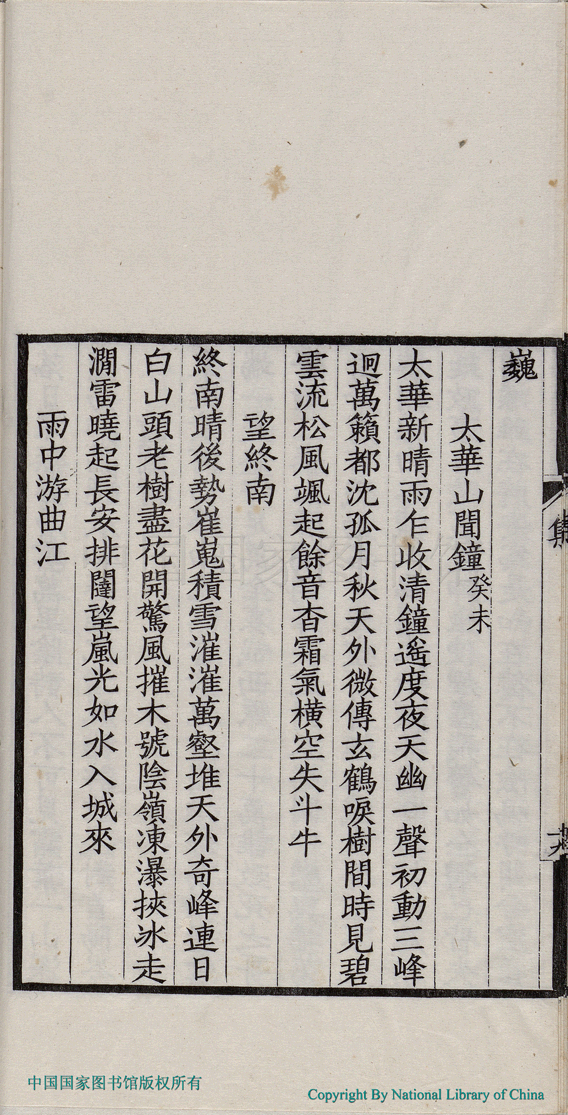 巍
太華山聞鐘癸未
太華新晴雨乍收清鐘遙度夜天幽一聲初動三峰
迥萬籟都沈孤月秋天外微傳玄鶴唳樹間時見碧
雲流松風颯起餘音杳霜氣橫空失斗牛
望終南
終南晴後勢崔嵬積雪漼漼萬壑堆天外奇峰連日
白山頭老樹盡花開驚風摧木號陰嶺凍瀑挾冰走
澗雷曉起長安排闥望嵐光如水入城來
雨中游曲江
集
中国国家图书馆版权所有
Copyright By National Library of China